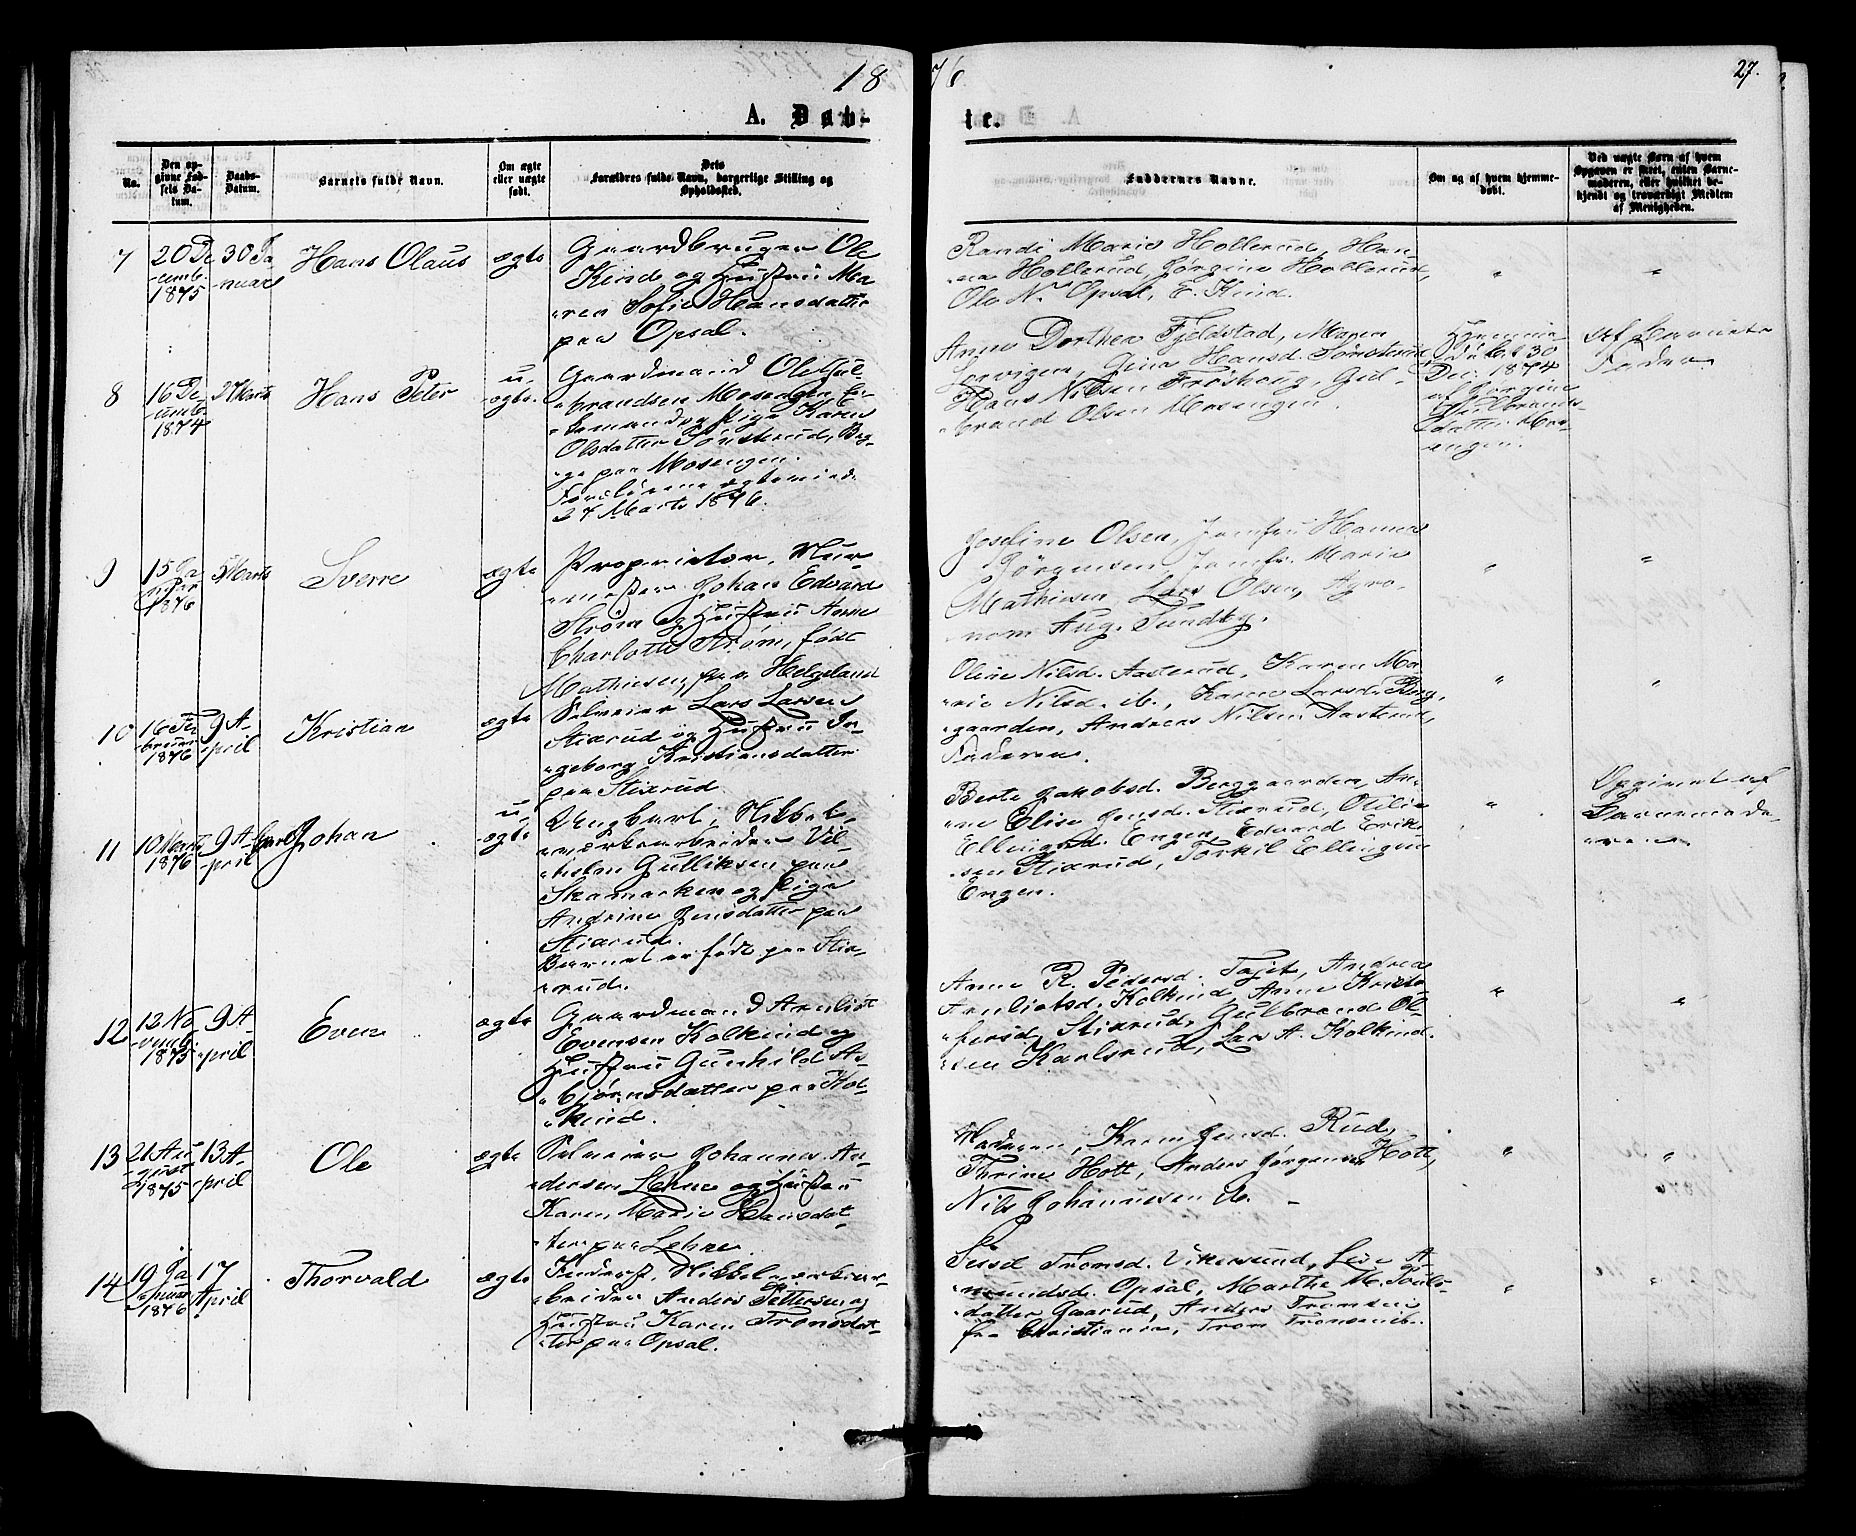 1876
27.
A. Døbte.
No.
Den opgivne Fødsels Datum.
Daabs-Datum.
Barnets fulde Navn.
Om ægte eller uægte født.
Dets Forældres fulde Navn, borgerlige Stilling og Opholdssted.
Faddernes Navne.
Om og af hvem hjemmedøbt.
Ved uægte Børn af hvem Opgaven er skeet, enten Barnemoderen, eller hvilket bekjendt og troværdigt Medlem af Menigheden.
7
20 De
cemb.
1875
30 Ja
nuar
Hans Olaus
ægte
Gaardbruger Ole
Kind og Hustru Ma
"ren Sofie Hansdatter
paa Opsal.
Randi Marie Hollerud, Han
na Hollerud, Jørgine Hollerud,
Ole N. Opsal, E. Kind.
"
"
8
16 De
cemb.
1874
27 Marts
Hans Peter
u,
"ægte
Gaardmand Ole Gul-
"brandsen Mosengen En
"kemand og Pige Karen
Olsdatter Tønsterud, Beg
"ge paa Mosengen.
Forældrene ægteviede
27 Marts 1876.
Anne Dorthea Fjeldstad, Maren
Hans Nilsen Frøshaug, Gul-
"brand Olsen Mosengen.
Hjemme
døbt 30
Dec. 1874
af Jørgine
Gulbrands-
datter Mos-
engen.
Af Barnets
Fader.
9
15 Ja
nuar
1876
5 Marts
Sverre
ægte
Proprietør, Mur
"mester Johan Edvard
Strøm og Hustru Anne
Charlotte Strøm, født
Mathiesen, paa Helgeland
Josefine Olsen, Jomfru Hanna
Jørgensen, Jomfr. Marie
Mathiesen, Lars Olsen, Agro-
nom Aug. Sundby.
"
"
10
16 Fe
bruar
1876
9 A-
"pril
Kristian
ægte
Selveier Lars Larsen
Stixrud og Hustru In-
"geborg Kristiansdatter
paa Stixrud.
Oline Nilsd. Aasterud, Karen Ma-
rie Nilsd. ib., Karen Larsd. Berg-
"gaarden, Andreas Nilsen Aasterud,
Faderen.
"
"
11
10 Marts
1876
9 A-
"pril
Carl Johan
u,
"ægte
Ungkarl, Nikkel-
"værksarbeider Vil-
"helm Gulliksen paa
Skamarken og Pige
Andrine Jensdatter paa
Stixrud.
Barnet er født paa Stix-
"rud.
Berte Jakobsd. Berggaarden, An-
"ne Elise Jensd. Stixrud, Otilie
Ellingsd. Engen, Edvard Erik-
sen Stixrud, Torkil Ellingsen
Engen.
"
Opgivet af
Barnemode-
"ren.
12
12 No
"vemb.
1875
9 A-
"pril
Even
ægte
Gaardmand Arnliot
Evensen Kolkind og
Hustru Gunhild As-
"bjørnsdatter paa Kol-
"kind.
Anne R. Pedersd. Foget, Andrea
Arnliotsd. Kolkind, Anne Kristo-
"fersd. Stixrud, Gulbrand Ol-
"sen Karlsrud, Lars A. Kolkind.
"
"
13
21 Au
gust
1875
13 A-
pril
Ole
ægte
Selveier Johannes An-
"dersen Lehne og Hustru
Karen Marie Hansdat-
"ter paa Lehne.
Moderen, Karen Jensd. Rud,
Thrine Hott, Anders Jørgensen Hott,
Nils Johannesen ib. –
"
"
14
19 Ja
nuar
1876
17
April
Thorvald
ægte
Inderst, Nikkelværksar-
"beider Anders Pettersen og
Hustru Karen Tronsdat-
"ter paa Opsal.
Sissel Tromsd. Vikersund, Live A-
"mundsd. Opsal, Marthe M. Pouls-
"datter Gaarud, Anders Tronsen
fra Christiania, Tron Tronsen ib.
"
"